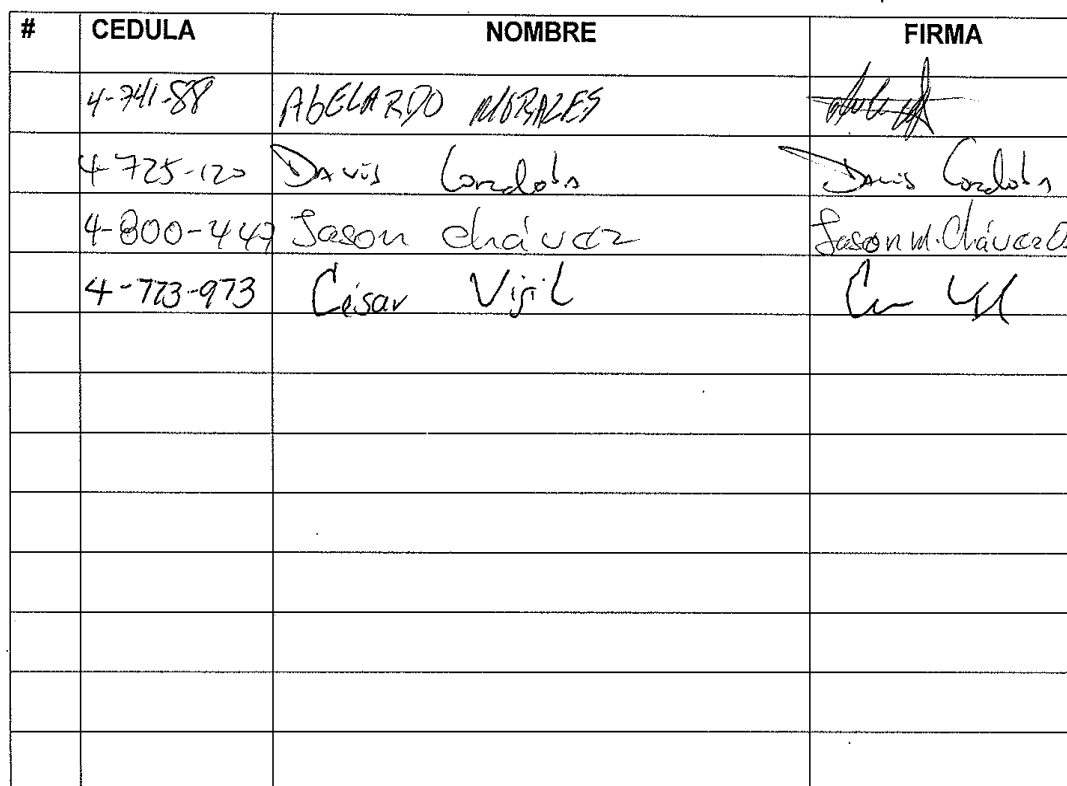 # CEDULA NOMBRE FIRMA
4-741-88 AbELARDO MORALES
4-725-120 Davis Cordoba Davis Cordoba
4-800-447 Jason chávez Jason M. Chávez
4-773-973 César Vigil